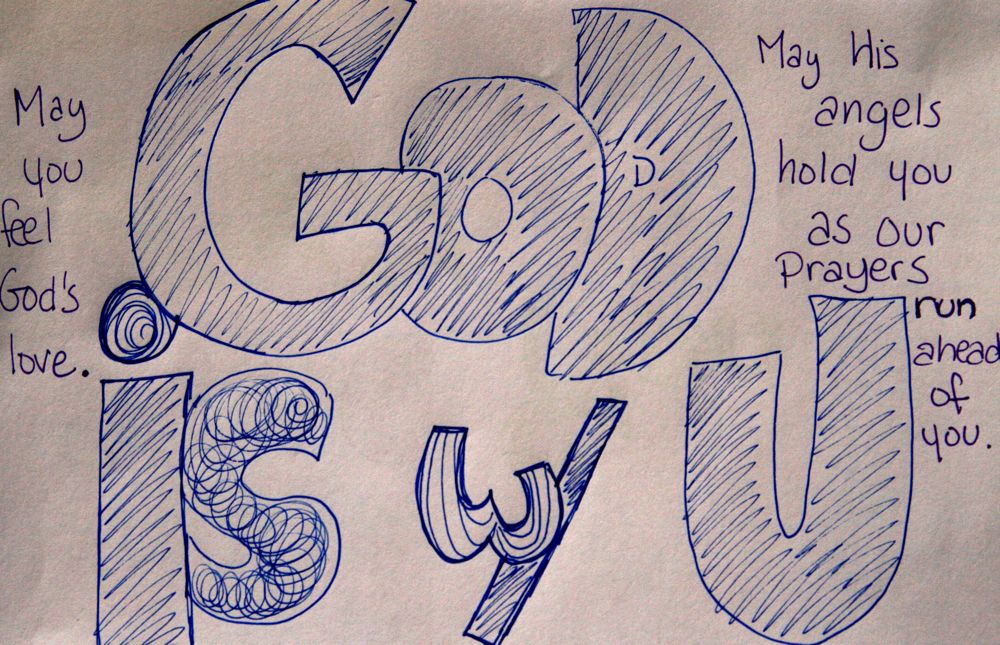 May
you
feel
God's
love.
GOD
D
is w/ U
May His
angels
hold you
as our
Prayers
run
ahead
of
you.